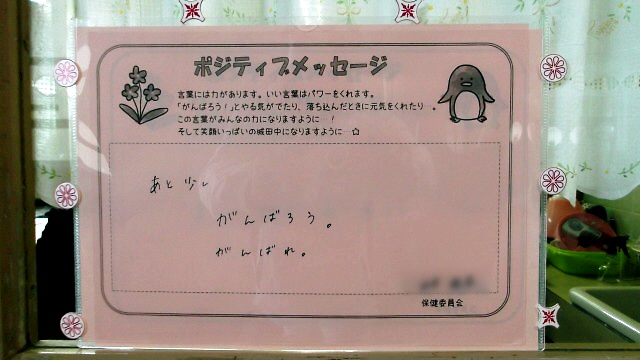 ポジティブメッセージ
言葉には力があります。いい言葉はパワーをくれます。
「がんばろう!」とやる気がでたり、落ち込んだときに元気をくれたり…。
この言葉がみんなの力になりますように…!
そして笑顔いっぱいの城田中になりますように…☆
あと少し
がんばろう。
がんばれ。
保健委員会